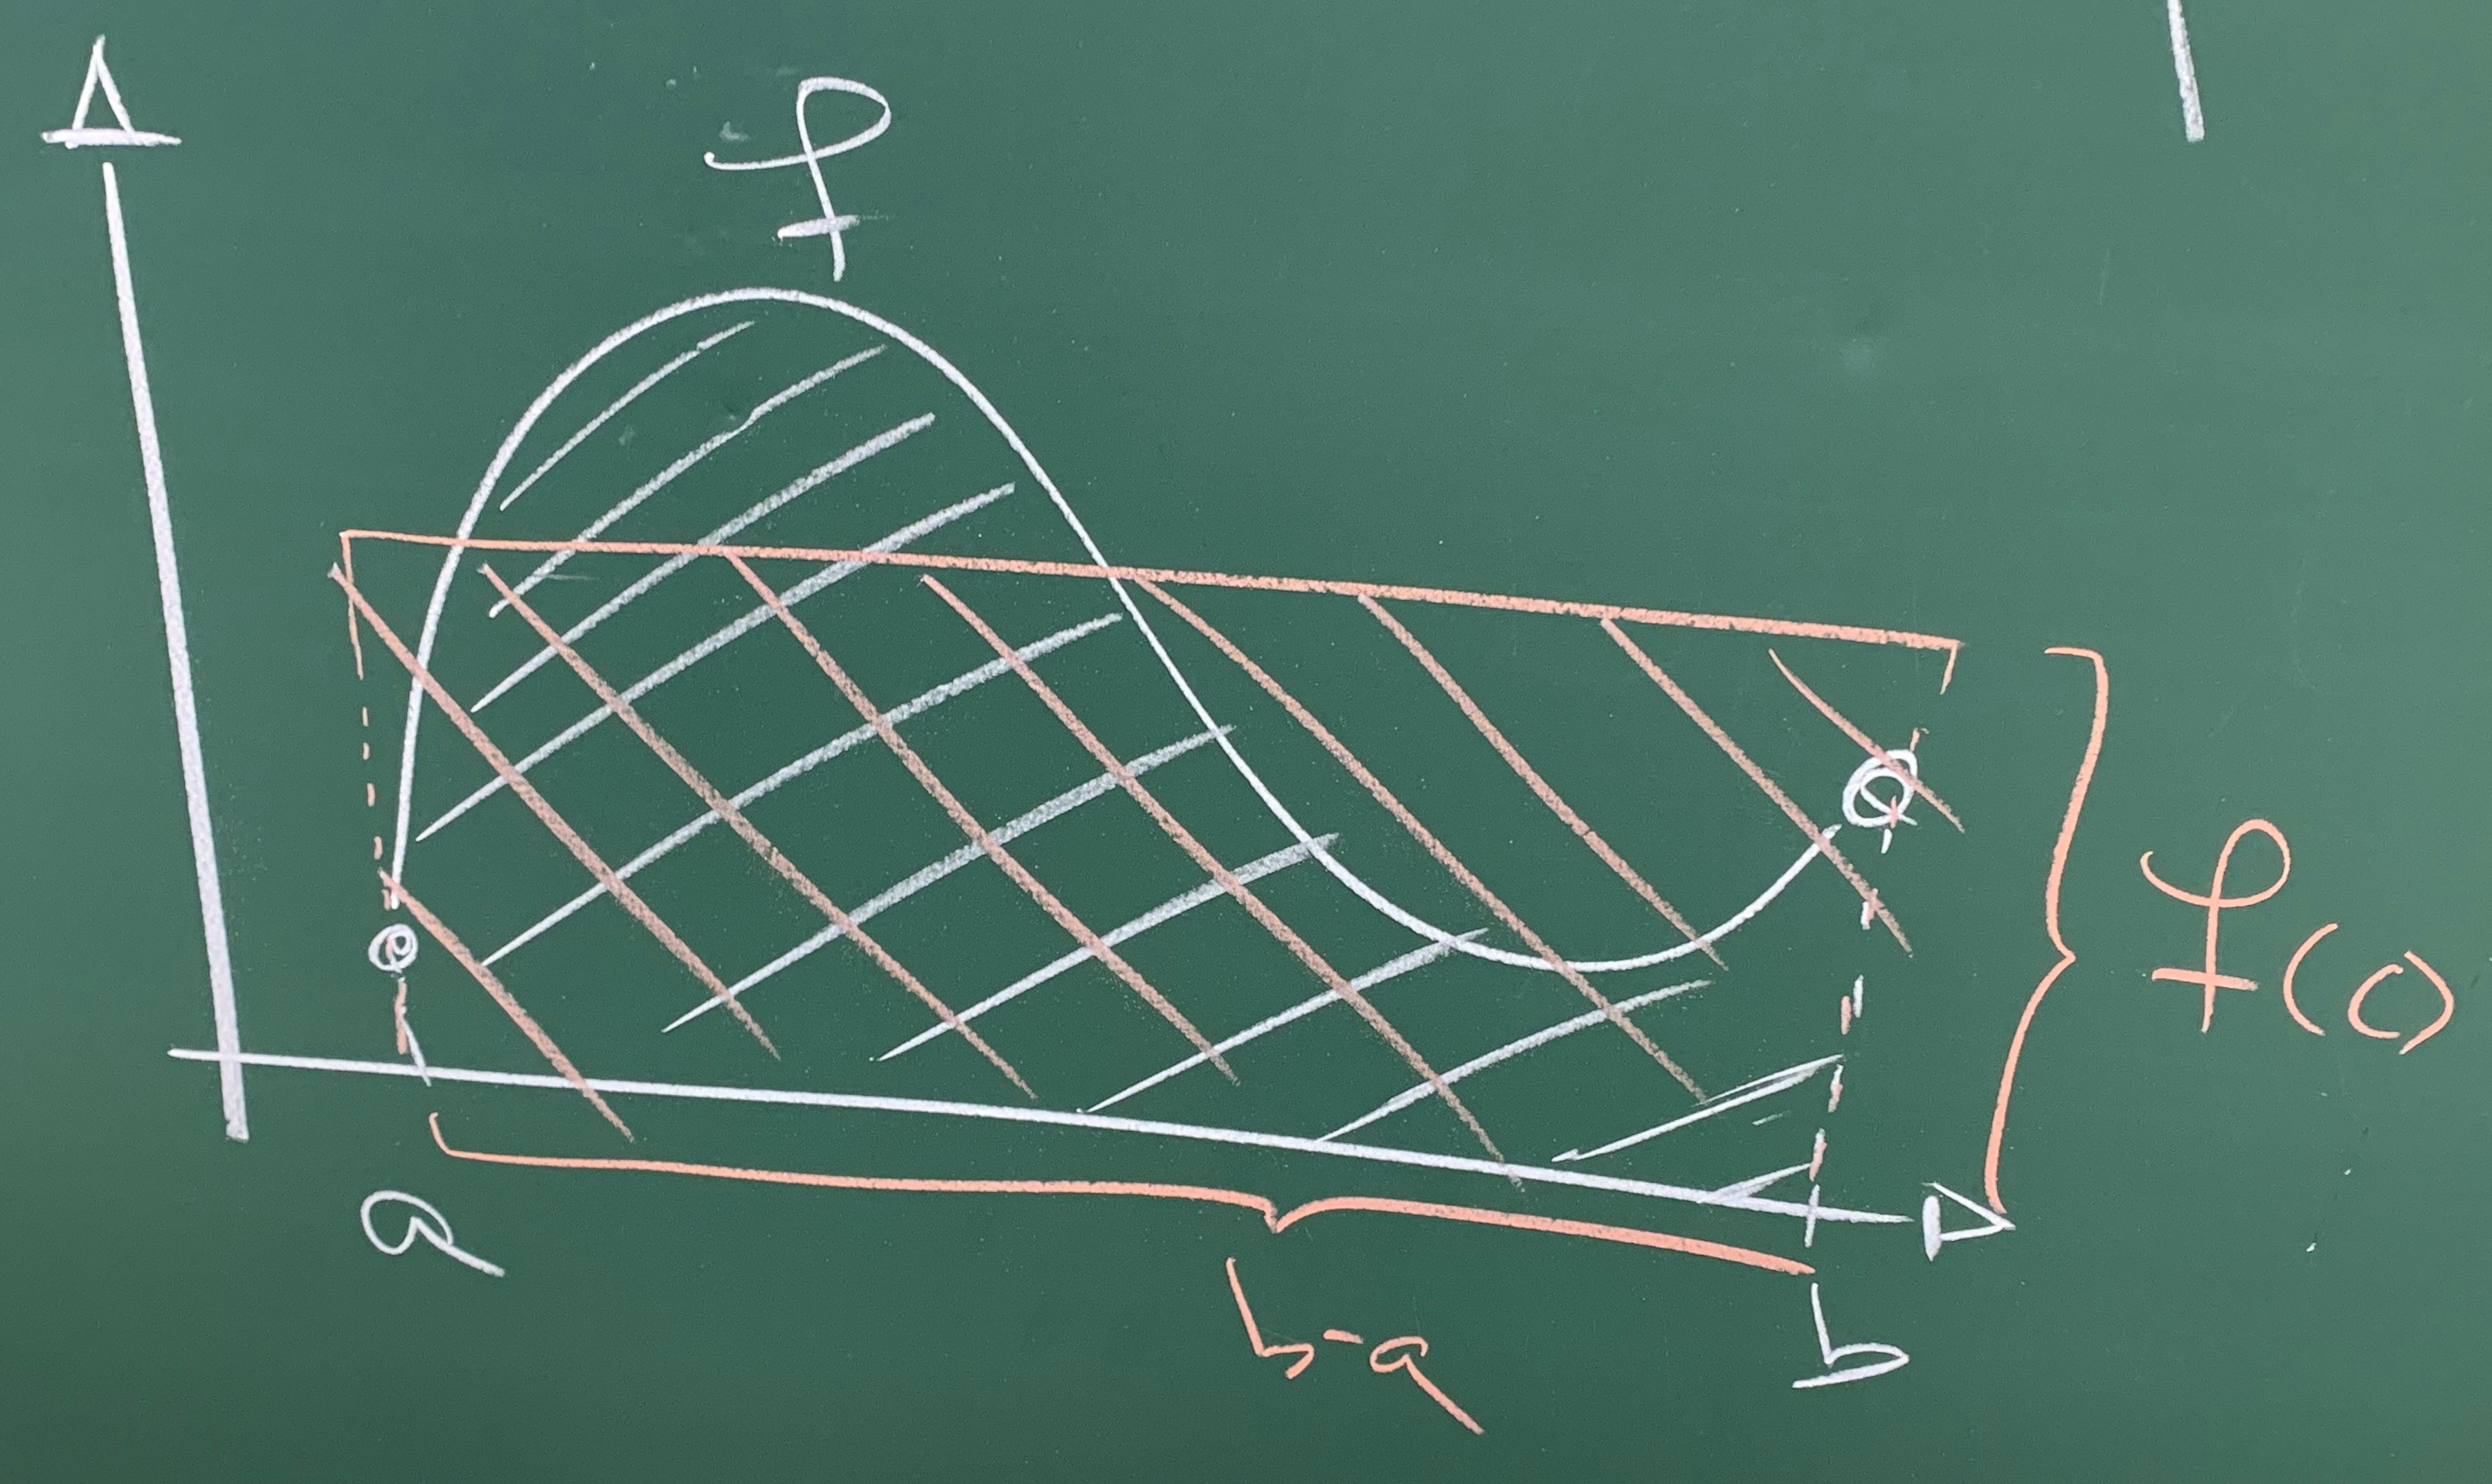 f
f(c)
a
b-a
b